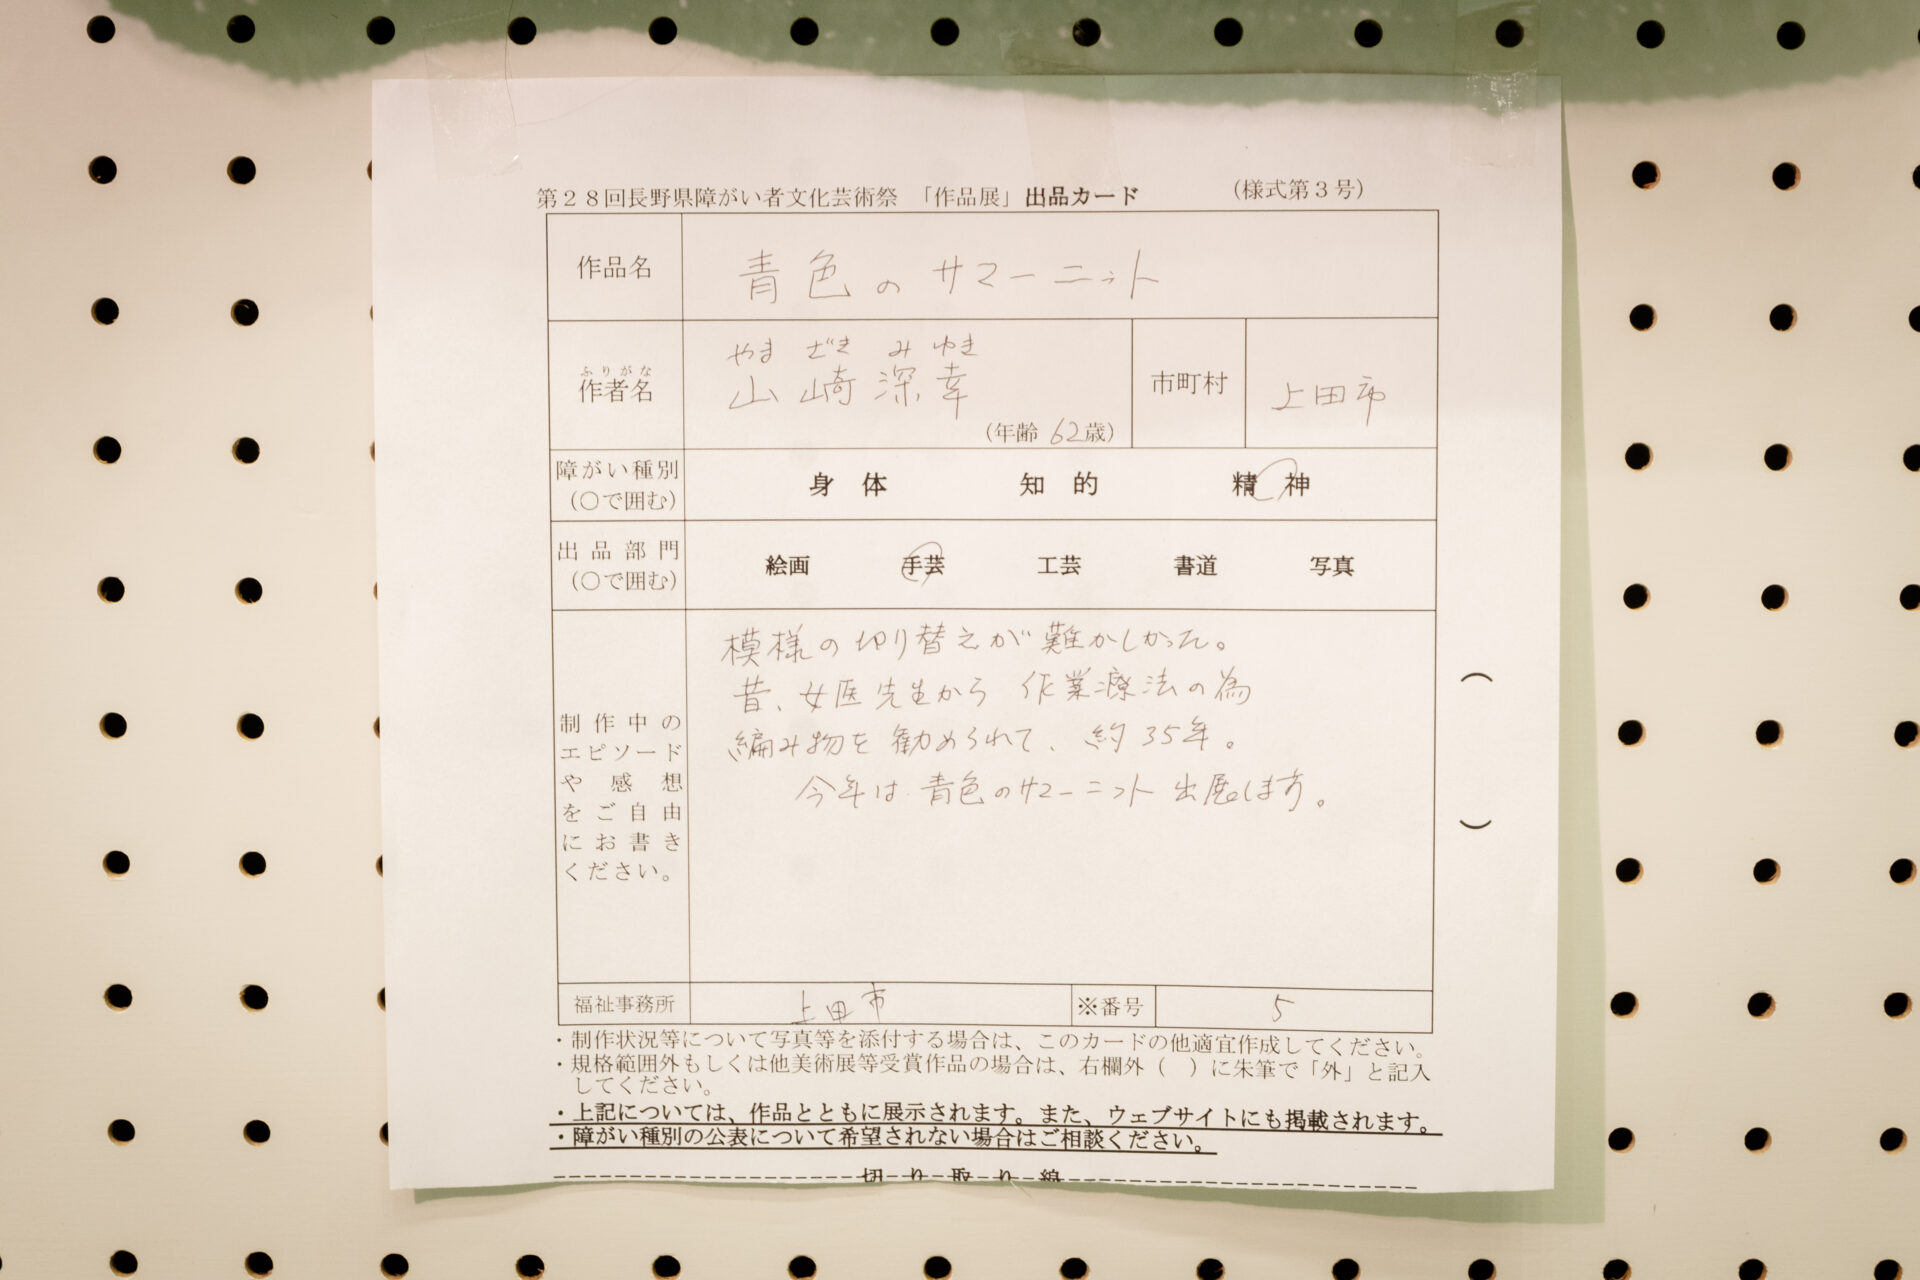 第28回長野県障がい者文化芸術祭 「作品展」出品カード (様式第3号)
作品名 青色のサマーニット
やま ざき み ゆき
ふりがな
作者名 山崎深幸 市町村 上田市
(年齢 62歳)
障がい種別 身体 知的 精神
(○で囲む)
出品部門 絵画 手芸 工芸 書道 写真
(○で囲む)
模様の切り替えが難かしかった。
昔、女医先生から 作業療法の為
編み物を勧められて、約35年。
今年は青色のサマーニット出展します。
制作中の
エピソード
や感想
をご自由
にお書き
ください。
( )
福祉事務所 上田市 ※番号 5
・制作状況等について写真等を添付する場合は、このカードの他適宜作成してください。
・規格範囲外もしくは他美術展等受賞作品の場合は、右欄外( )に朱筆で「外」と記入
してください。
・上記については、作品とともに展示されます。また、ウェブサイトにも掲載されます。
・障がい種別の公表について希望されない場合はご相談ください。
切り取り線